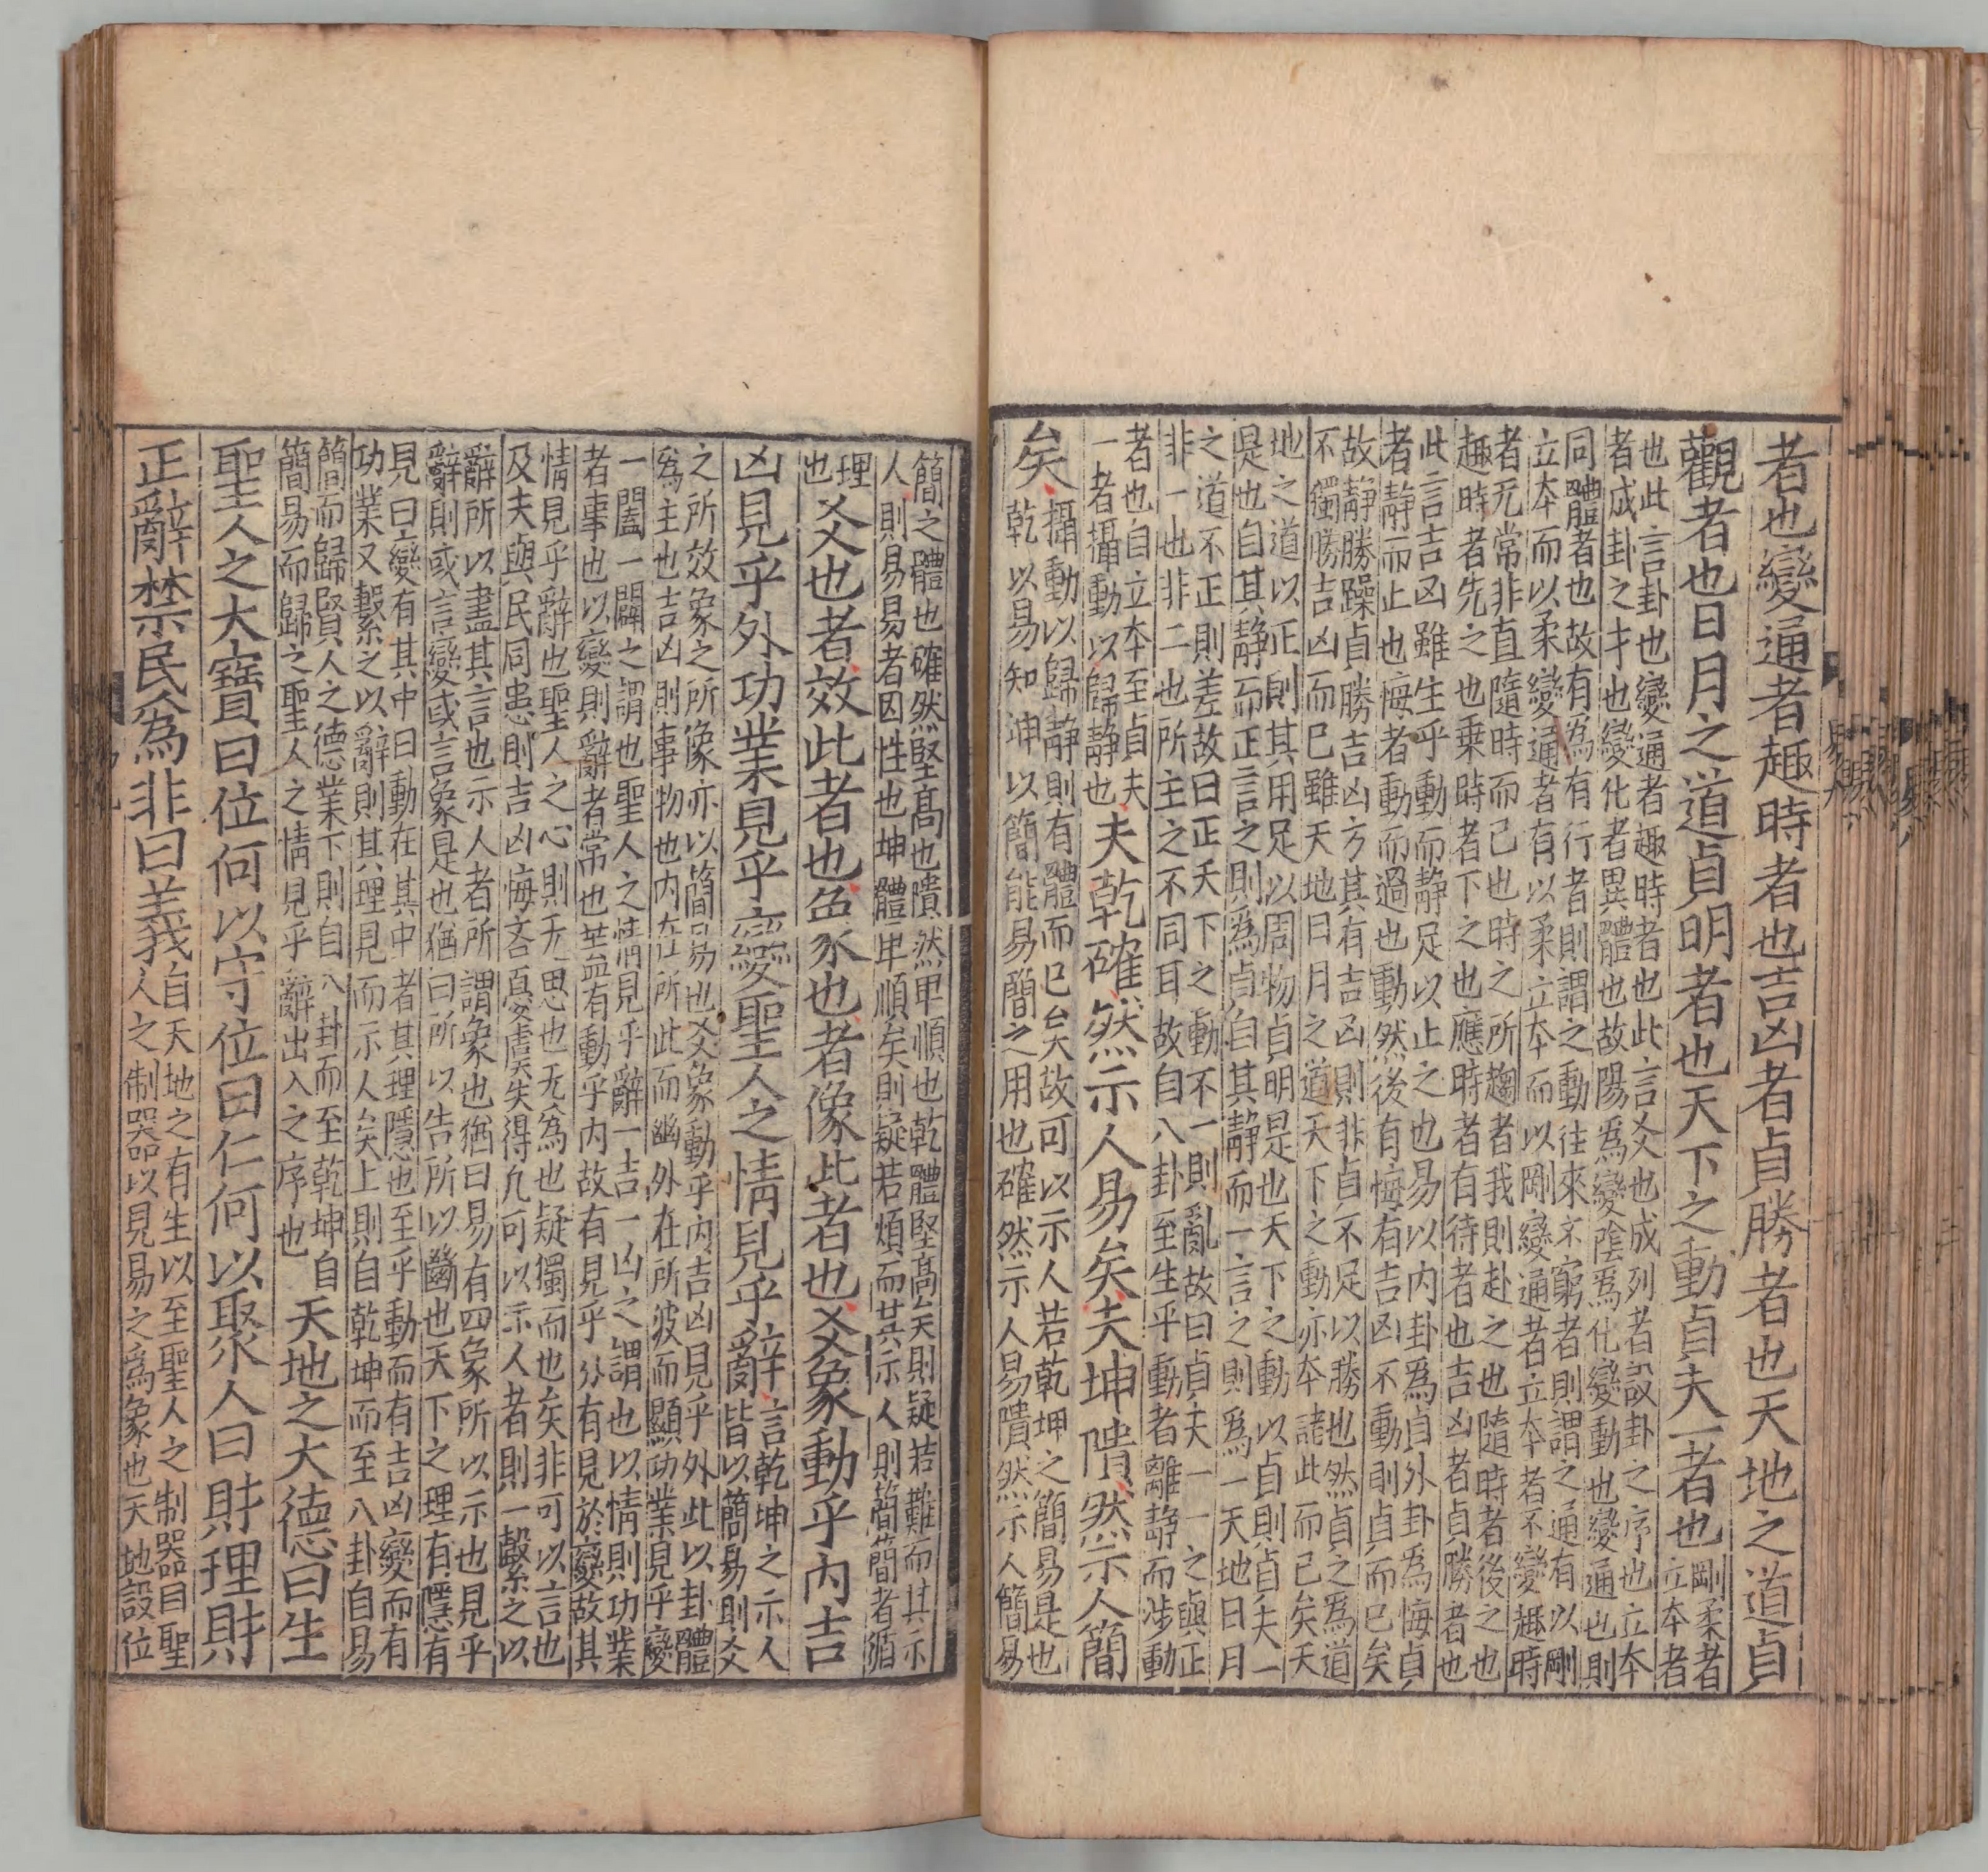 者也變通者趣時者也吉凶者貞勝者也天地之道貞
觀者也日月之道貞明者也天下之動貞夫一者也剛柔者
立本者
也此言卦也變通者趣時者也此言爻也成列者設卦之序也立本
者成卦之才也變化者異體也故陽爲變陰爲化變動也變通也則
同體者也故有爲有行者則謂之動往來不窮者則謂之通有以剛
立本而以柔變通者有以柔立本而以剛變通者立本者不變趣時
者无常非直隨時而已也時之所趨者我則赴之也隨時者後之也
趣時者先之也乗時者下之也應時者有待者也吉凶者貞勝者也
此言吉凶雖生乎動而静足以止之也易以内卦爲貞外卦爲悔貞
者静而止也悔者動而過也動然後有悔有吉凶不動則貞而已矣
故静勝躁貞勝吉凶方其有吉凶則非貞不足以勝也然貞之爲道
不獨勝吉凶而已雖天地日月之道天下之動亦本諸此而已矣天
地之道以正則其用足以周物貞明是也天下之動以貞則貞夫一
是也自其静而正言之則爲貞自其静而一言之則爲一天地日月
之道不正則差故曰正天下之動不一則亂故曰貞夫一一之與正
非一也非二也所主之不同耳故自八卦至生乎動者離静而渉動
者也自立本至貞夫
一者攝動以歸静也夫乾確然示人易矣夫坤隤然示人簡
矣攝動以歸静則有體而已矣故可以示人若乾坤之簡易是也
乾以易知坤以簡能易簡之用也確然示人易隤然示人簡易
簡之體也確然堅高也隤然甲順也乾體堅高矣則疑若難而其示
人則易易者因性也坤體甲順矣則疑若煩而其示人則簡簡者循
理
也爻也者效此者也象也者像此者也爻象動乎内吉
凶見乎外功業見乎變聖人之情見乎辭言乾坤之示人
皆以簡易則爻
之所效象之所像亦以簡易也爻象動乎内吉凶見乎外此以卦體
爲主也吉凶則事物也内在所此而幽外在所彼而顯功業見乎變
一闔一闢之謂也聖人之情見乎辭一吉一凶之謂也以情則功業
者事也以變則辭者常也葢有動乎内故有見乎外有見於變故其
情見乎辭也聖人之心則无思也无爲也疑獨而也矣非可以言也
及夫與民同患則吉凶悔吝憂虞失得凢可以示人者則一繫之以
辭所以盡其言也示人者所謂象也猶曰易有四象所以示也見乎
辭則或言變或言象是也猶曰所以告所以斷也天下之理有隱有
見曰變有其中曰動在其中者其理隱也至乎動而有吉凶變而有
功業又繫之以辭則其理見而示人矣上則自乾坤而至八卦自易
簡而歸賢人之德業下則自八卦而至乾坤自
簡易而歸之聖人之情見乎辭出入之序也天地之大德曰生
聖人之大寶曰位何以守位曰仁何以聚人曰財理財
正辭禁民爲非曰義自天地之有生以至聖人之制器目聖
人之制器以見易之爲象也天地設位